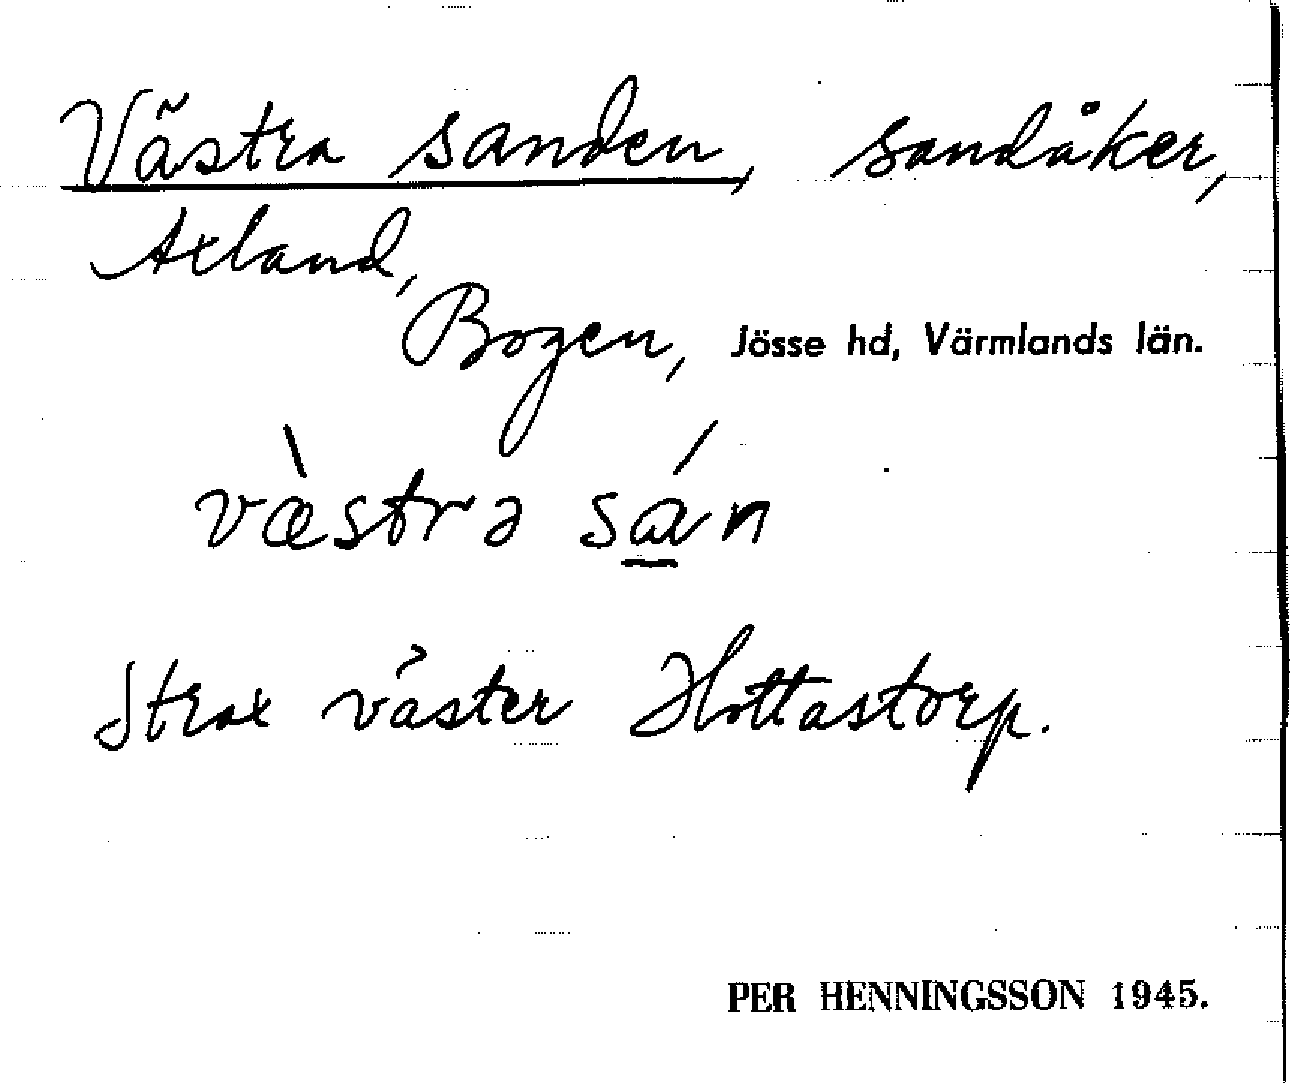 Västra sanden, sandåker,
Axland,
Bogen, Jösse hd, Värmlands län.
v̀æstrə śa̲n
Strax väster Hottastorp.
PER HENNINGSSON 1945.